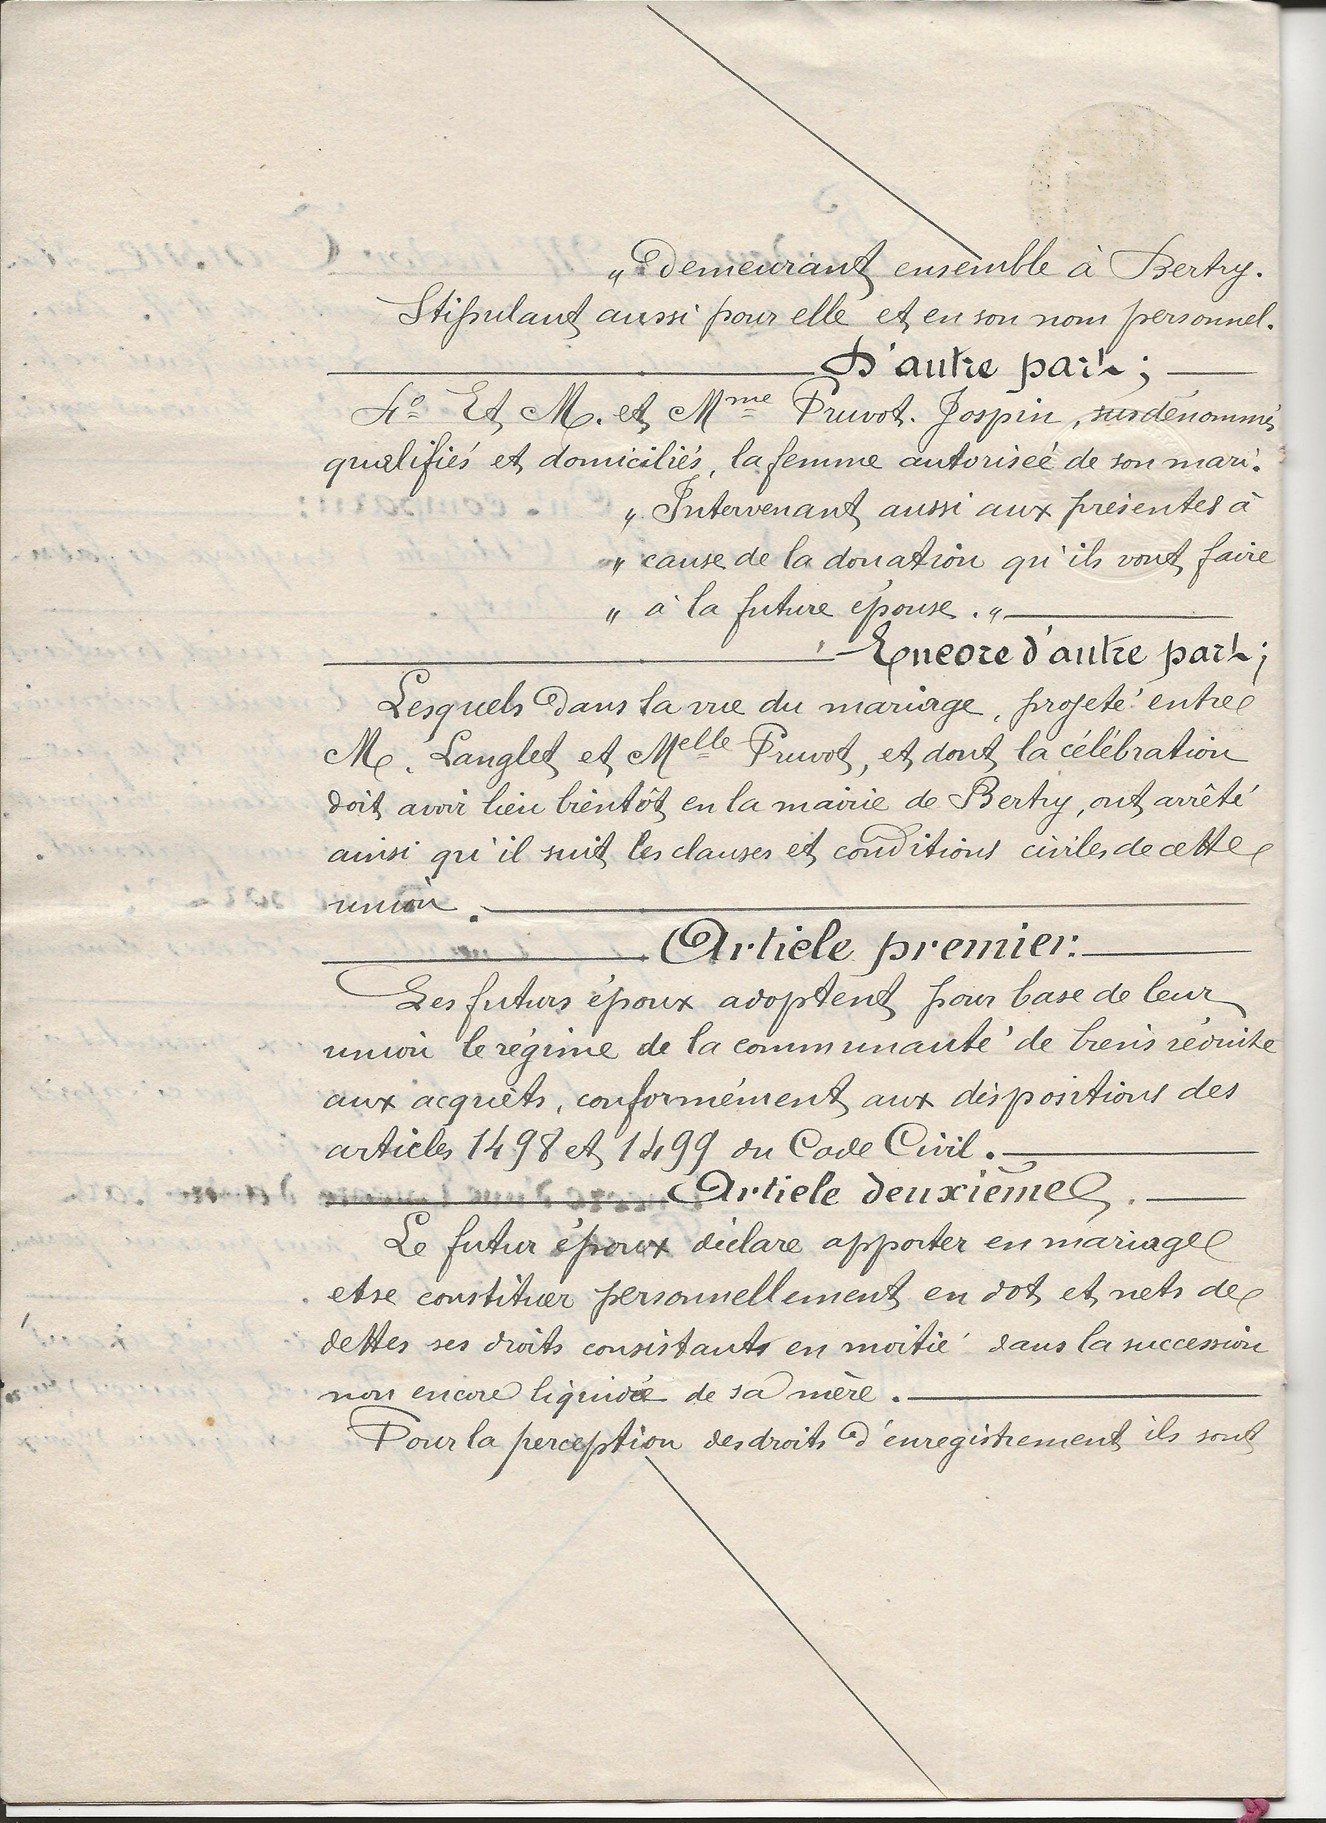 „ Demeurant ensemble à Bertry.
Stipulant aussi pour elle et en son nom personnel.
D'autre part ;
4º Et M. et Mme Pruvot-Jospin, susdénommés
qualifiés et domiciliés, la femme autorisée de son mari.
„ Intervenant aussi aux présentes à
„ cause de la donation qu'ils vont faire
„ à la future épouse. „
Encore d'autre part ;
Lesquels dans la vue du mariage, projeté entre
M. Langlet et Melle Pruvot, et dont la célébration
doit avoir lieu bientôt en la mairie de Bertry, ont arrêté
ainsi qu'il suit les clauses et conditions civiles de cette
union.
Article premier.
Les futurs époux adoptent pour base de leur
union le régime de la communauté de biens réduite
aux acquêts, conformément aux dispositions des
articles 1498 et 1499 du Code Civil.
Article deuxième.
Le futur époux déclare apporter en mariage
et se constituer personnellement en dot et nets de
dettes ses droits consistants en moitié dans la succession
non encore liquidée de sa mère.
Pour la perception des droits d'enregistrement ils sont